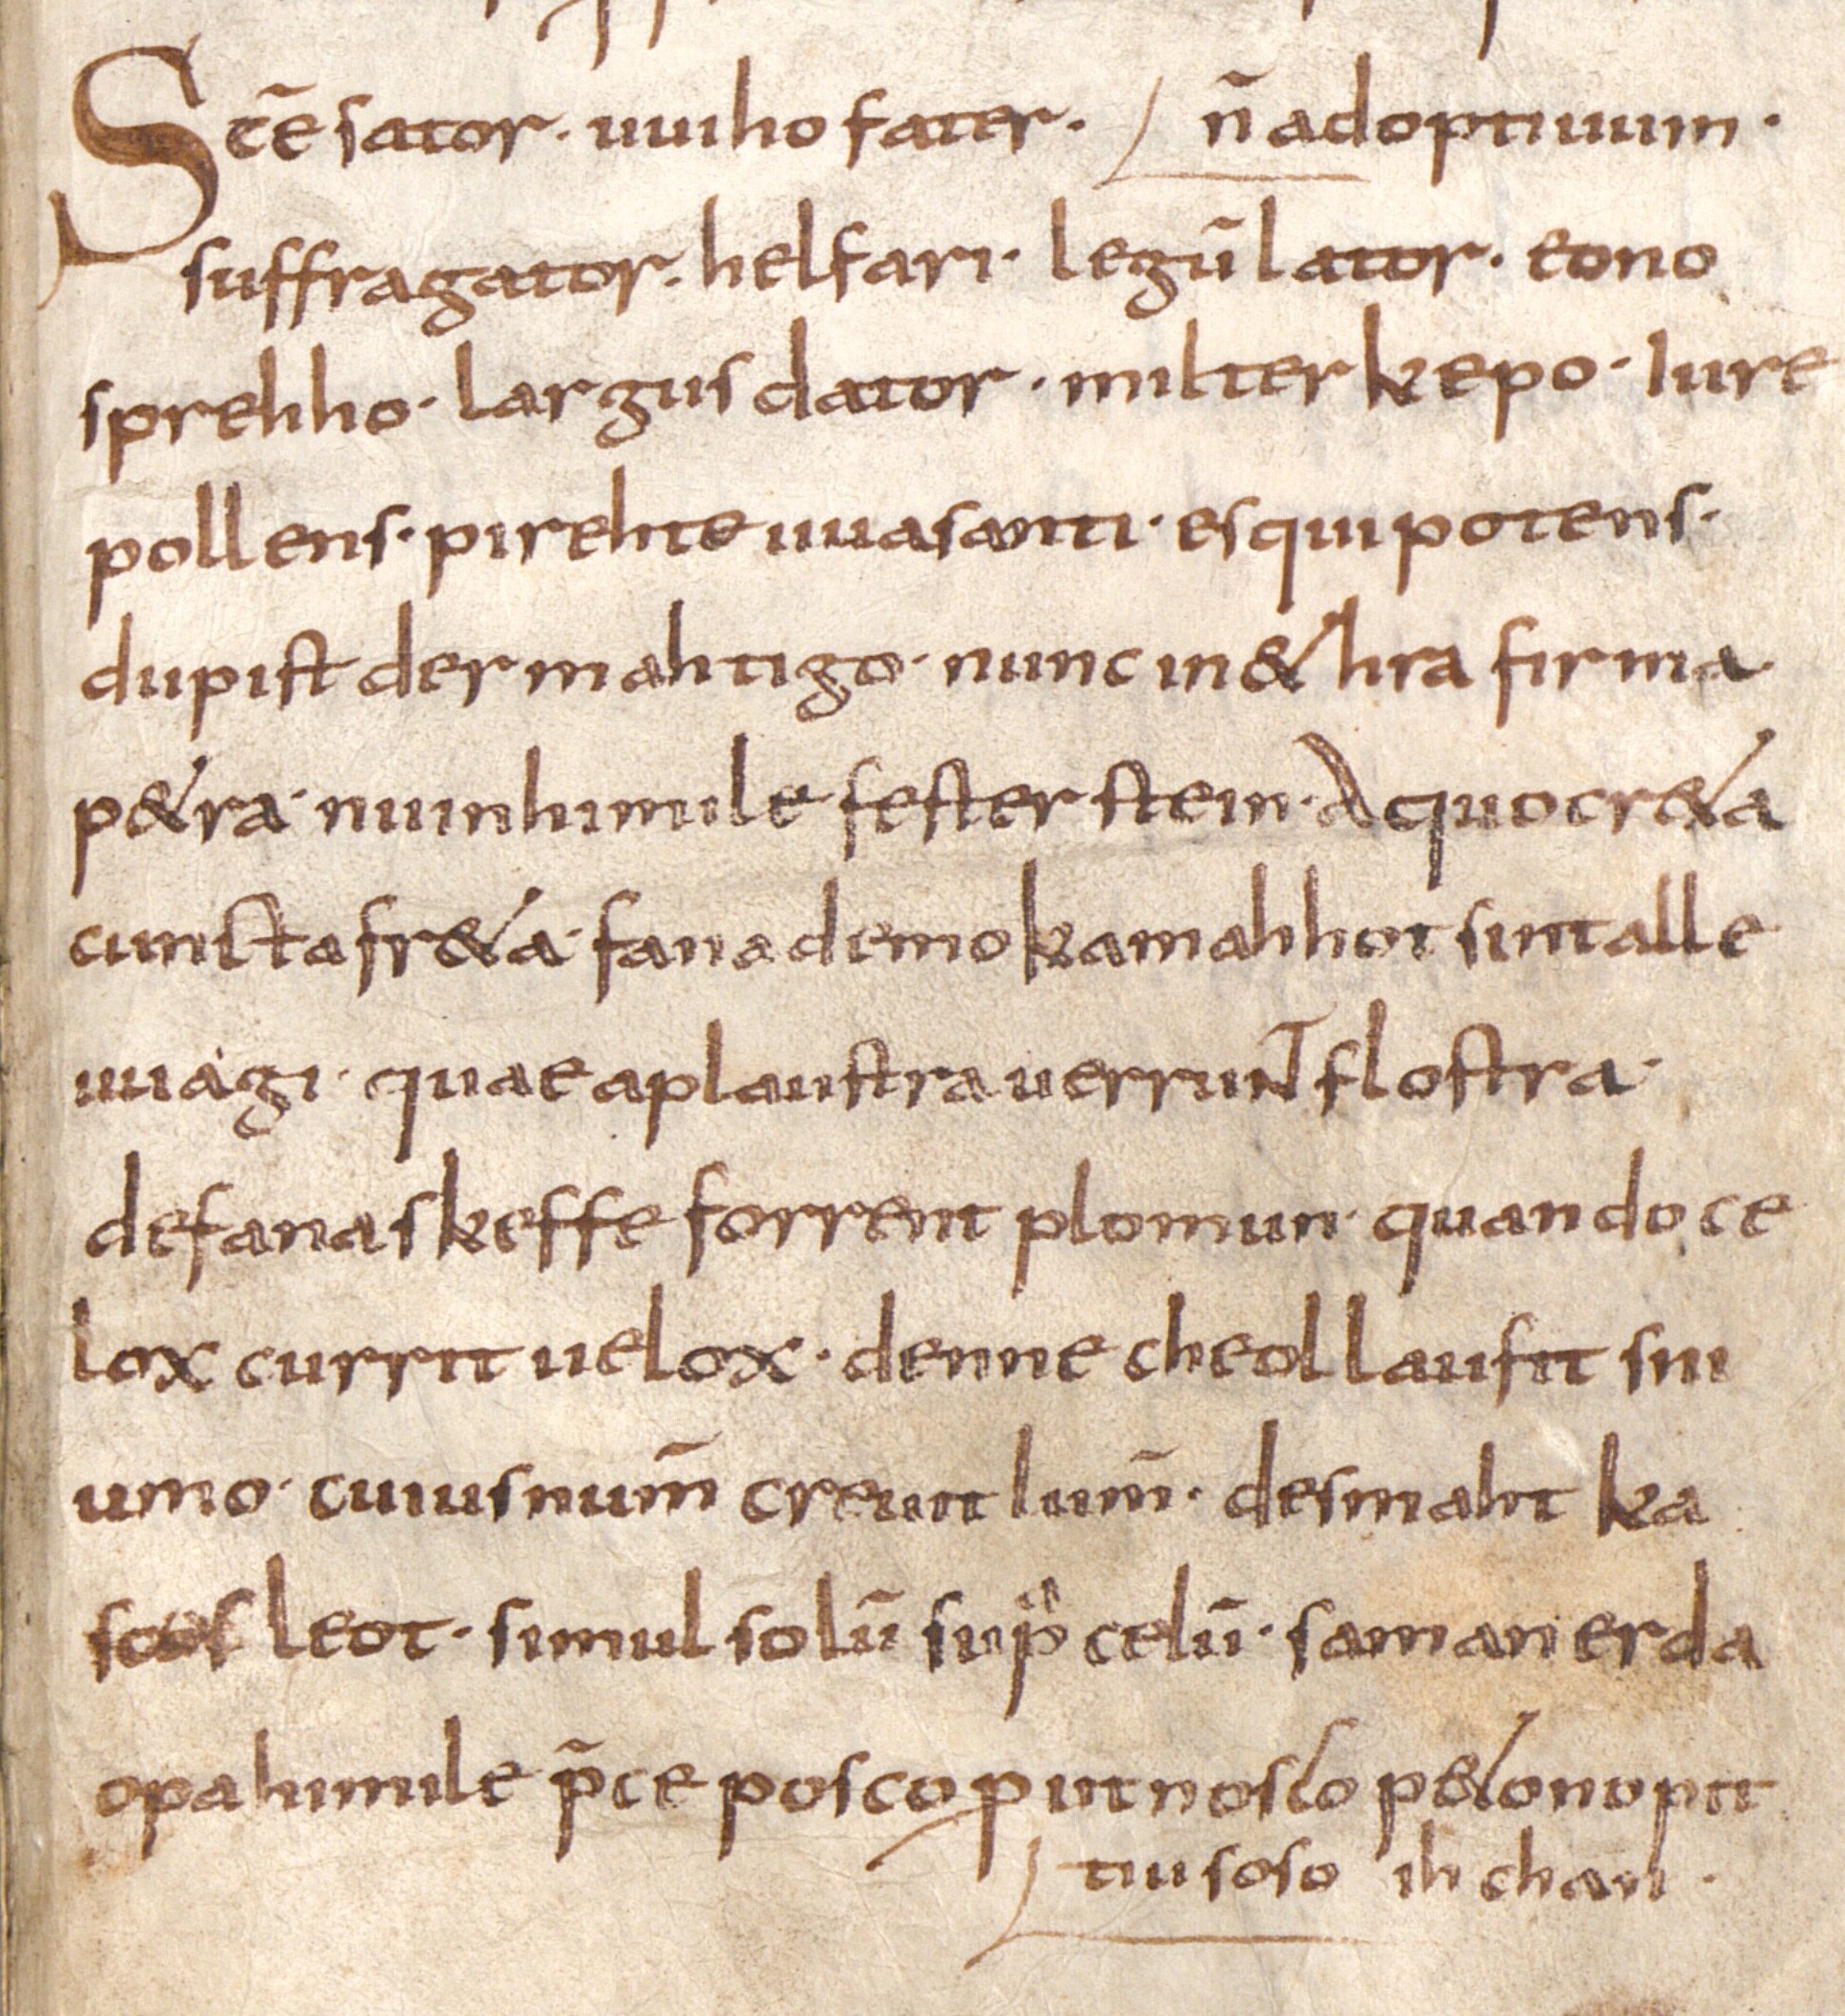 Sc̄e sator · uuiho fater · n̄ adoptiuum ·
suffragator · helfari · legū lator · eono
sprehho · largus dator · milter kepo · Iure
pollens · pirehte uuasanti · es qui potens ·
du pist der mahtigo · nunc in &hra firma
p&ra · nu in himile fester stein · A quo cr&a
cuncta fr&a · fana demo kamahhot sint alle
uuági · quae aplaustra uerrunt flostra ·
de fana skeffe forrent plomun · quando ce
lox currit uelox · denne cheol laufit sni
umo · cuius num̄ creuit lum̄ · des maht ka
scof leot · simul solū sup celū · saman erda
opa himile p̄ce posco p ut nosco p&ono pit
tiu soso ih chan ·